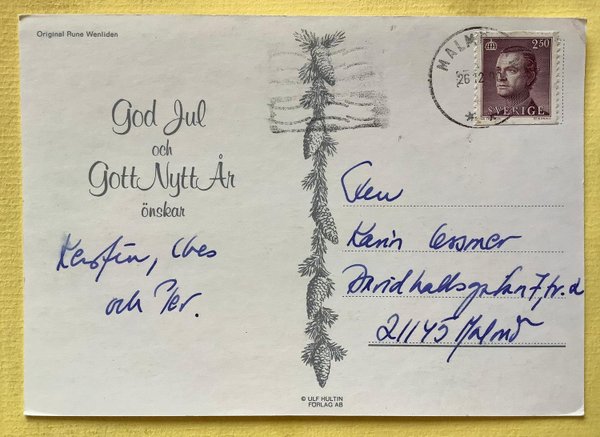 Original Rune Wenliden
God Jul
och
Gott Nytt År
önskar
Kerstin,
och Per.
© ULF HULTIN
FÖRLAG AB
MALM
26 12
2.50
SVERIGE
Karin
Davidhallsgatan 7,
21145 Malmö